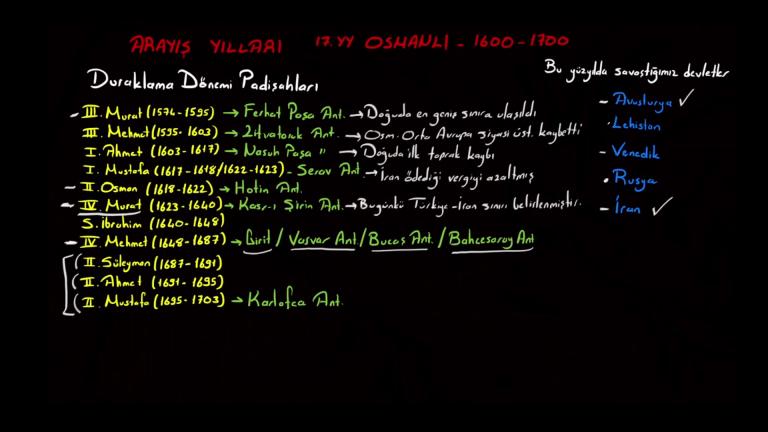 ARAYIŞ YILLARI 17.YY OSMANLI - 1600-1700
Bu yüzyılda savaştığımız devletler
Duraklama Dönemi Padişahları
- III. Murat (1574-1595) → Ferhat Paşa Ant. → Doğuda en geniş sınıra ulaşıldı
III. Mehmet (1595-1603) → Zitvatorok Ant. → Osm. Orta Avrupa siyasi üst. kaybetti
I. Ahmet (1603-1617) → Nasuh Paşa " → Doğuda ilk toprak kaybı
I. Mustafa (1617-1618/1622-1623) - Serav Ant. → İran ödediği vergiyi azaltmış
- II. Osman (1618-1622) → Hotin Ant.
- IV. Murat (1623-1640) → Kasr-ı Şirin Ant. → Bugünkü Türkiye-İran sınırı belirlenmiştir.
S. İbrahim (1640-1648)
- IV. Mehmet (1648-1687) → Girit / Vasvar Ant. / Bucaş Ant. / Bahçesaray Ant
II. Süleyman (1687-1691)
II. Ahmet (1691-1695)
II. Mustafa (1695-1703) → Karlofça Ant.
- Avusturya ✓
· Lehistan
- Venedik
· Rusya
- İran ✓